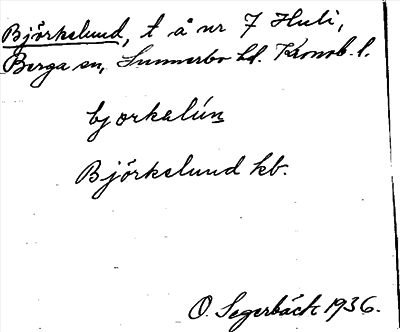 Björkelund, t å nr 7 Huli,
Berga sn, Sunnerbo hd. Kronob. l.
bjorkalún
Björkelund kb.
O. Segerbäck 1936.